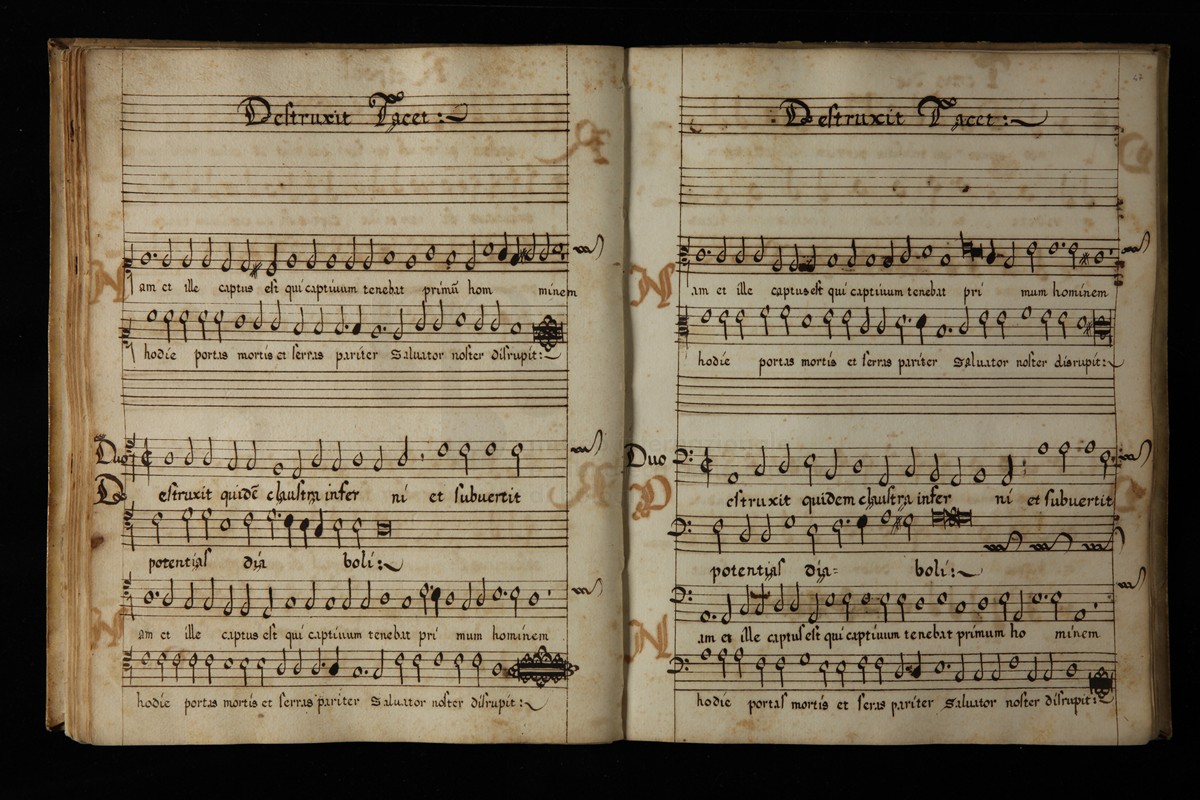 Destruxit Tacet :
am et ille captus est qui captiuum tenebat primū hom minem
hodie portas mortis et serras pariter Saluator noster disrupit :
Duo
Destruxit quidē claustra infer ni et subuertit
potentias dia boli :
Nam et ille captus est qui captiuum tenebat pri mum hominem
hodie portas mortis et serras pariter Saluator noster disrupit :
47
Destruxit Tacet :
Nam et ille captus est qui captiuum tenebat pri mum hominem
hodie portas mortis et serras pariter Saluator noster disrupit :
Duo
Destruxit quidem claustra infer ni et subuertit
potentias dia= boli :
Nam et ille captus est qui captiuum tenebat primum ho minem
hodie portas mortis et seras pariter Saluator noster disrupit :